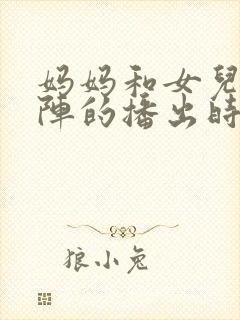 妈妈和女兒
陣的播出時
狼小兔